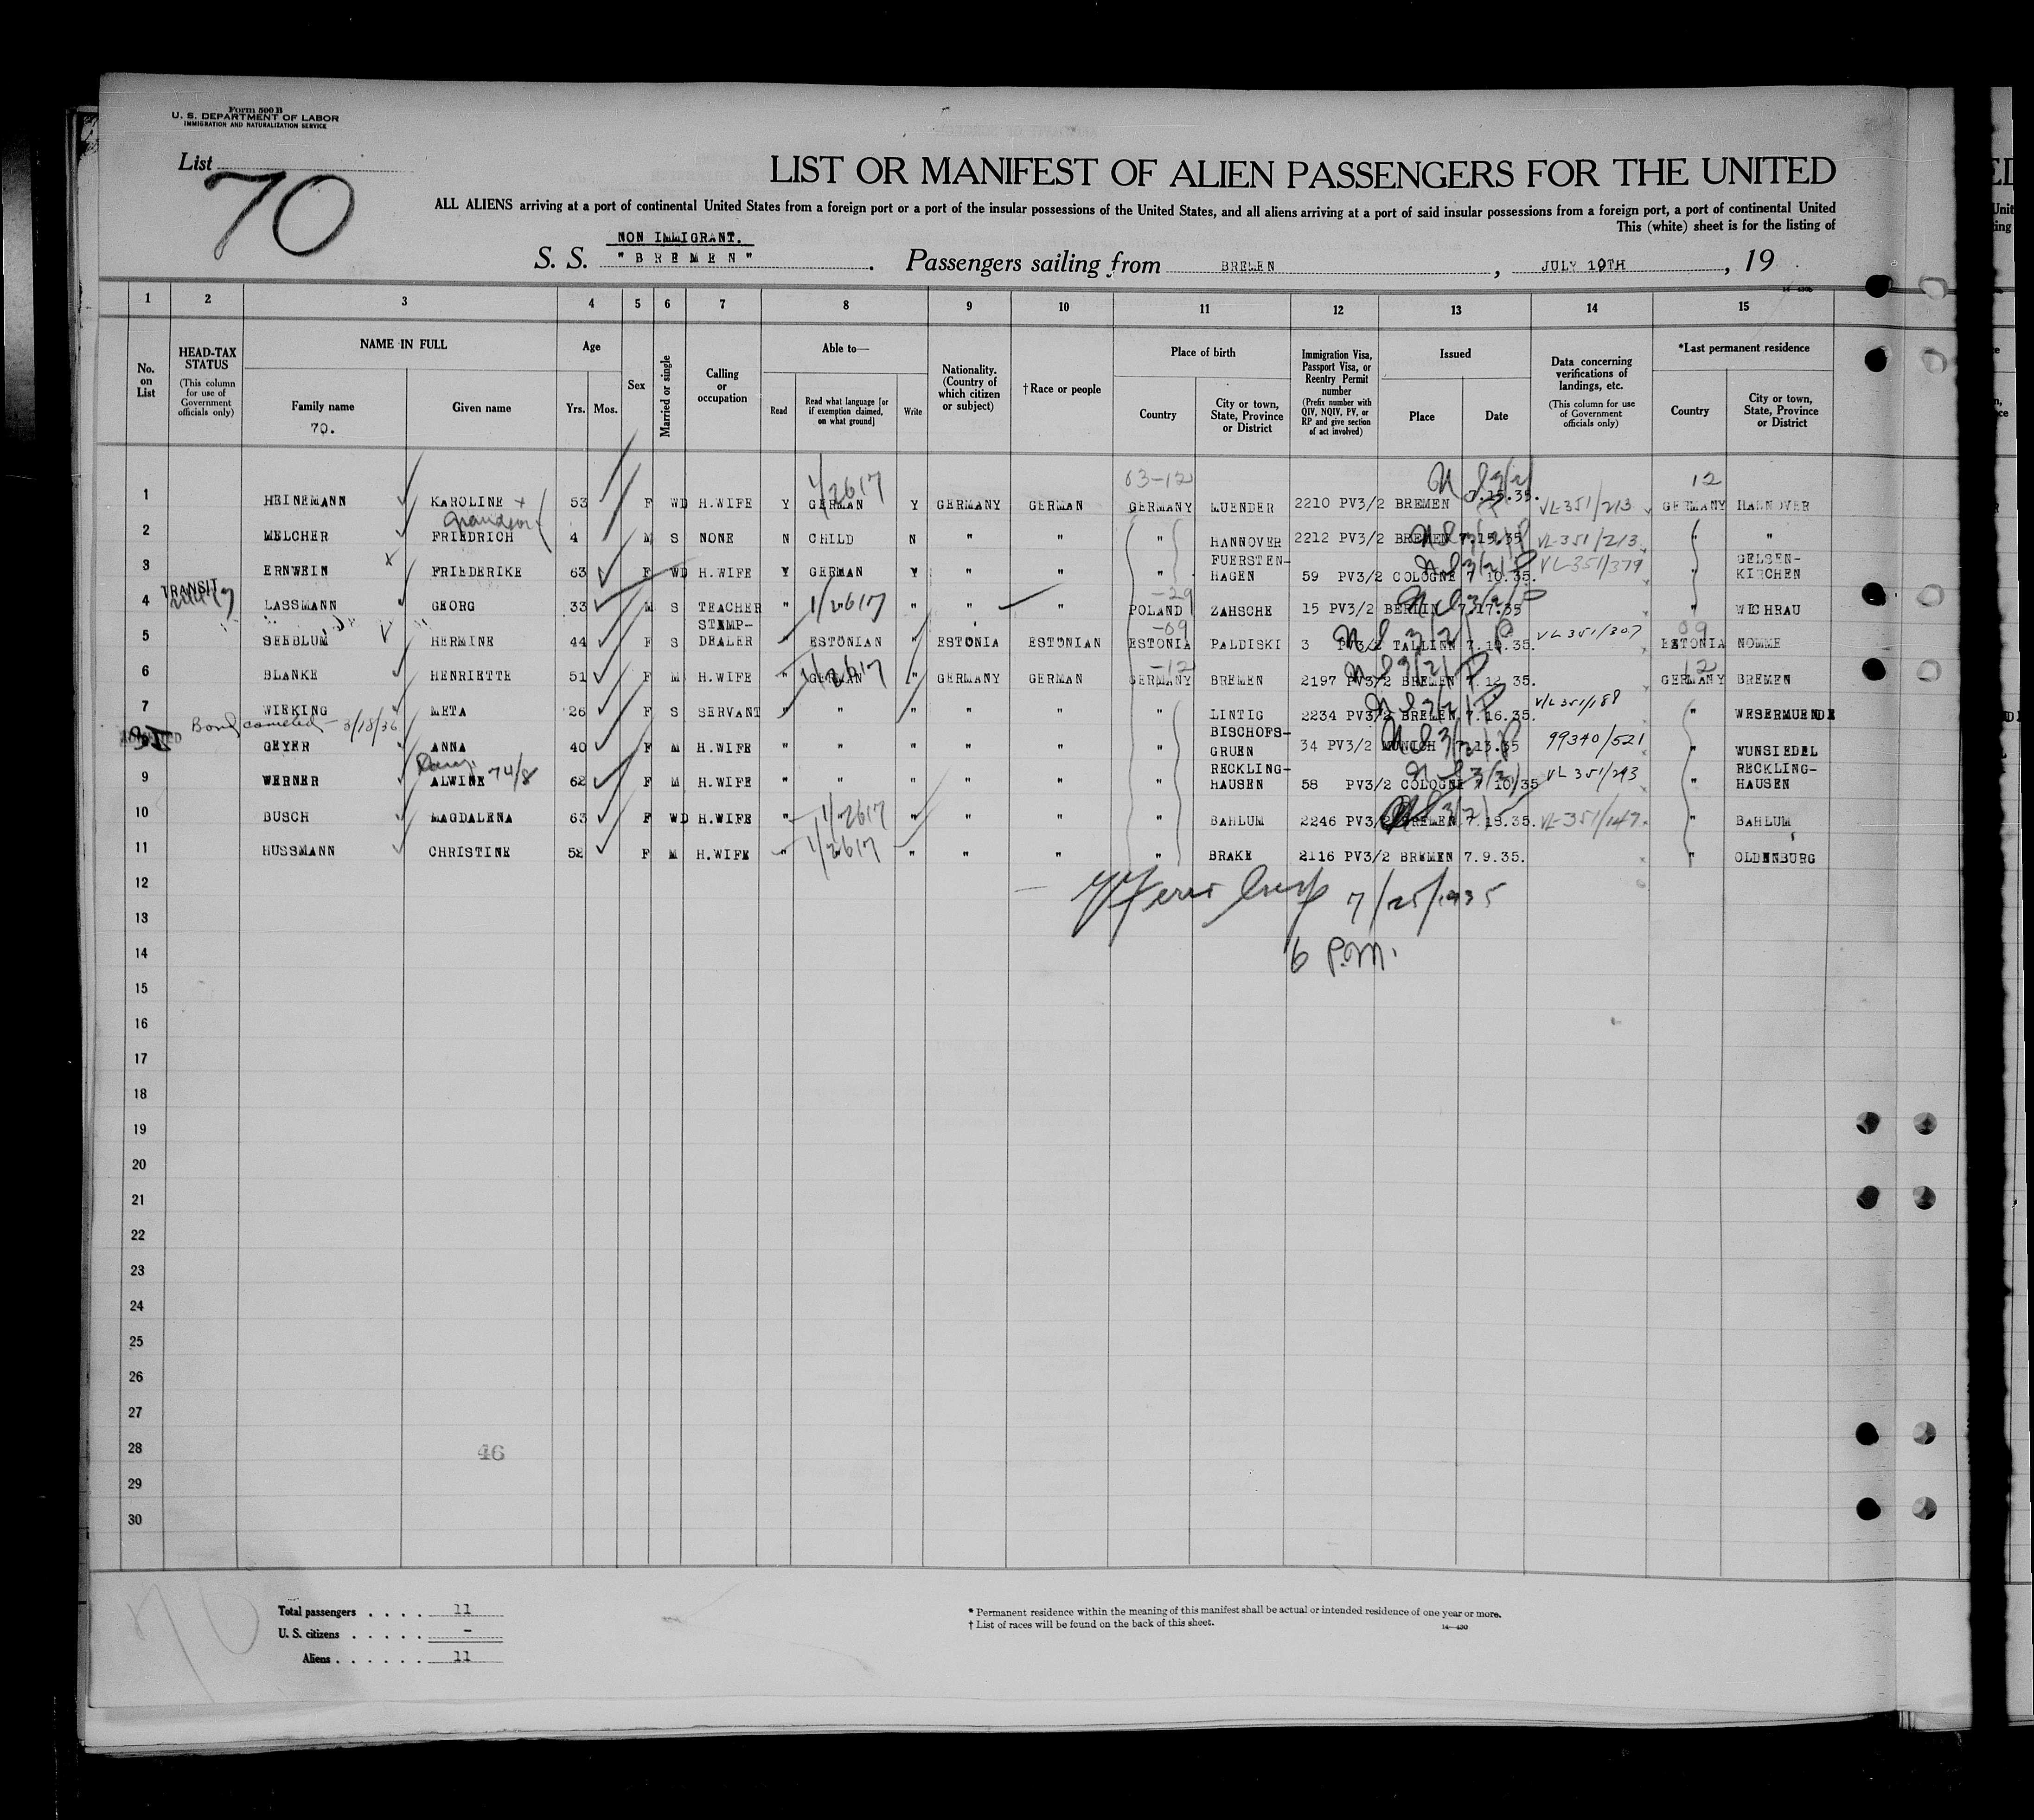 Form 500 B
U. S. DEPARTMENT OF LABOR
IMMIGRATION AND NATURALIZATION SERVICE
List
70
LIST OR MANIFEST OF ALIEN PASSENGERS FOR THE UNITED
ALL ALIENS arriving at a port of continental United States from a foreign port or a port of the insular possessions of the United States, and all aliens arriving at a port of said insular possessions from a foreign port, a port of continental United
This (white) sheet is for the listing of
NON IMMIGRANT.
S. S. "BREMEN". Passengers sailing from BREMEN, JULY 19TH, 19
1 2 3 4 5 6 7 8 9 10 11 12 13 14 15
No. on List
HEAD-TAX STATUS (This column for use of Government officials only)
NAME IN FULL
Family name
70.
Given name
Age
Yrs. Mos.
Sex
Married or single
Calling or occupation
Able to—
Read
Read what language [or if exemption claimed, on what ground]
Write
Nationality. (Country of which citizen or subject)
† Race or people
Place of birth
Country
City or town, State, Province or District
Immigration Visa, Passport Visa, or Reentry Permit number (Prefix number with QIV, NQIV, PV, or RP and give section of act involved)
Issued
Place
Date
Data concerning verifications of landings, etc. (This column for use of Government officials only)
*Last permanent residence
Country
City or town, State, Province or District
03-12 12
1 HEINEMANN KAROLINE 53 F WD H.WIFE Y GERMAN Y GERMANY GERMAN GERMANY MUENDER 2210 PV3/2 BREMEN 7.15.35. VL-351/213 GERMANY HANNOVER
Grandson
2 MELCHER FRIEDRICH 4 M S NONE N CHILD N " " " HANNOVER 2212 PV3/2 BREMEN 7.15.35 VL-351/213 " "
3 ERNWEIN FRIEDERIKE 63 F WD H.WIFE Y GERMAN Y " " " FUERSTEN-HAGEN 59 PV3/2 COLOGNE 7 10.35. VL-351/379 " GELSEN-KIRCHEN
TRANSIT
4 LASSMANN GEORG 33 M S TEACHER " 1/2617 " " " POLAND ZAHSCHE 15 PV3/2 BERLIN 7.17.35 " WICHRAU
-29
5 SEEBLUM HERMINE 44 F S STAMP-DEALER ESTONIAN " ESTONIA ESTONIAN ESTONIA PALDISKI 3 PV3/2 TALLINN 7.10.35. VL 351/307 ESTONIA NOMME
-09 09
6 BLANKE HENRIETTE 51 F M H.WIFE " GERMAN " GERMANY GERMAN GERMANY BREMEN 2197 PV3/2 BREMEN 7.12.35. GERMANY BREMEN
-12 12
7 WIEKING META 26 F S SERVANT " " " " " " LINTIG 2234 PV3/2 BREMEN 7.16.35. V/L 351/188 " WESERMUENDE
Bond canceled - 3/18/36
GEYER ANNA 40 F M H.WIFE " " " " " " BISCHOFS-GRUEN 34 PV3/2 MUNICH 7.13.35 99340/521 " WUNSIEDEL
9 WERNER ALWINE 74/8 62 F M H.WIFE " " " " " " RECKLING-HAUSEN 58 PV3/2 COLOGNE 7 10/35 VL 351/293 " RECKLING-HAUSEN
10 BUSCH MAGDALENA 63 F WD H.WIFE " 1/2617 " " " " BAHLUM 2246 PV3/2 BREMEN 7.15.35. VL-351/147. " BAHLUM
11 HUSSMANN CHRISTINE 52 F M H.WIFE " 1/2617 " " " " BRAKE 2116 PV3/2 BREMEN 7.9.35. " OLDENBURG
12
7/25/1935
13
14 6 P.M.
15
16
17
18
19
20
21
22
23
24
25
26
27
28 46
29
30
Total passengers . . . . 11
U. S. citizens . . . . . –
Aliens . . . . . . 11
* Permanent residence within the meaning of this manifest shall be actual or intended residence of one year or more.
† List of races will be found on the back of this sheet.
14—430